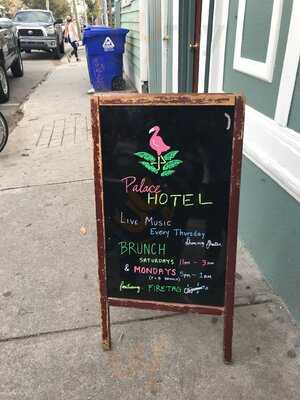 Palace
HOTEL
LIVE MUSIC
Every Thursday
BRUNCH
SATURDAYS 11am - 3pm
& MONDAYS
featuring FIRETAG